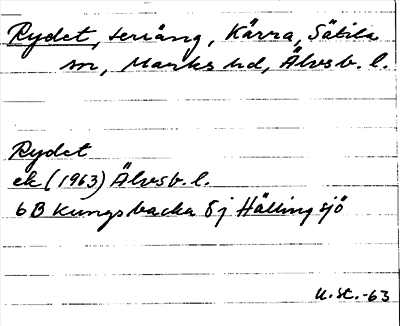 Rydet, teräng, Kärra, Sätila
sn, Marks hd, Älvsb. l.
Rydet
ek (1963) Älvsb. l.
6B Kungsbacka 8j Hällingsjö
U.st.-63